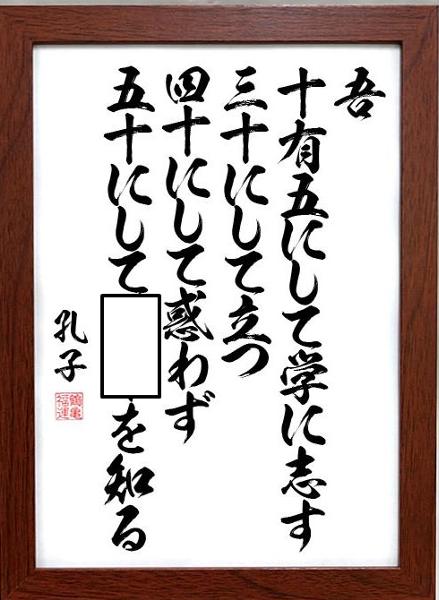 吾
十有五にして学に志す
三十にして立つ
四十にして惑わず
五十にして を知る
孔子
鶴亀
福運